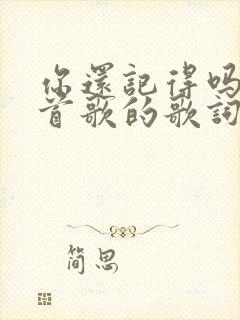 你還記得吗
首歌的歌詞
简思